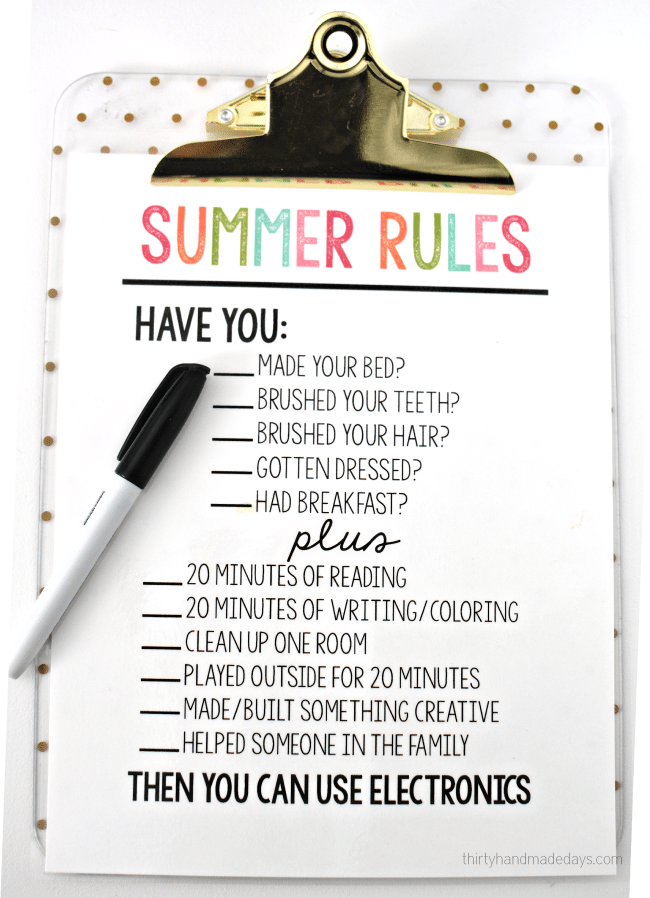 SUMMER RULES
HAVE YOU:
MADE YOUR BED?
BRUSHED YOUR TEETH?
BRUSHED YOUR HAIR?
GOTTEN DRESSED?
HAD BREAKFAST?
plus
20 MINUTES OF READING
20 MINUTES OF WRITING/COLORING
CLEAN UP ONE ROOM
PLAYED OUTSIDE FOR 20 MINUTES
MADE/BUILT SOMETHING CREATIVE
HELPED SOMEONE IN THE FAMILY
THEN YOU CAN USE ELECTRONICS
thirtyhandmadedays.com